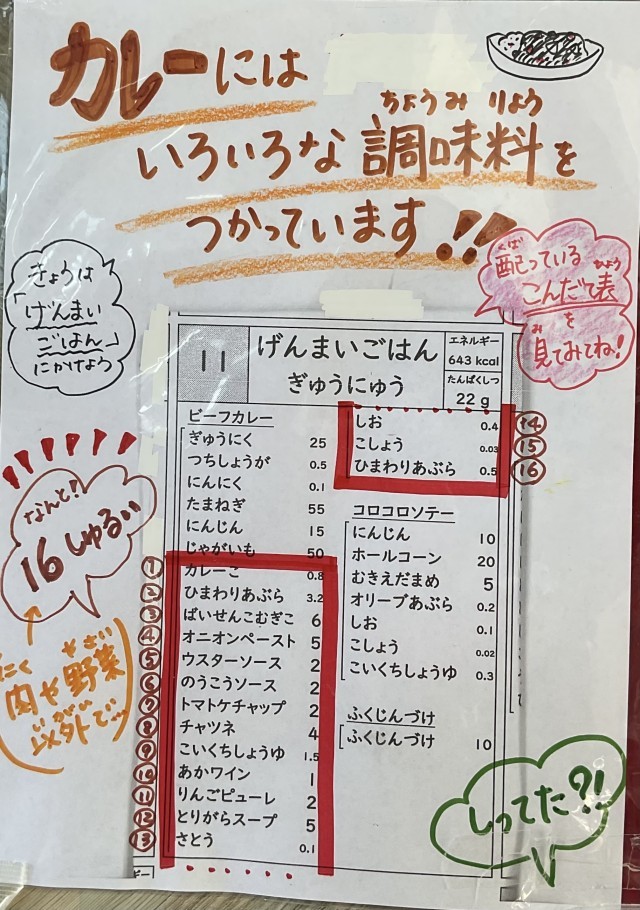 カレーには
ちょうみ りょう
いろいろな調味料を
つかっています!!
きょうは
「げんまい
ごはん」
にかけよう
くば
配っている
ひょう
こんだて表
を
み
見てみてね!
11
げんまいごはん
ぎゅうにゅう
エネルギー
643 kcal
たんぱくしつ
22 g
ビーフカレー
ぎゅうにく 25
つちしょうが 0.5
にんにく 0.1
たまねぎ 55
にんじん 15
じゃがいも 50
① カレーこ 0.8
② ひまわりあぶら 3.2
③ ばいせんこむぎこ 6
④ オニオンペースト 5
⑤ ウスターソース 2
⑥ のうこうソース 2
⑦ トマトケチャップ 2
⑧ チャツネ 4
⑨ こいくちしょうゆ 1.5
⑩ あかワイン 1
⑪ りんごピューレ 2
⑫ とりがらスープ 5
⑬ さとう 0.1
しお 0.4 ⑭
こしょう 0.03 ⑮
ひまわりあぶら 0.5 ⑯
コロコロソテー
にんじん 10
ホールコーン 20
むきえだまめ 5
オリーブあぶら 0.2
しお 0.1
こしょう 0.02
こいくちしょうゆ 0.3
ふくじんづけ
ふくじんづけ 10
なんと!
16しゅるい
にく やさい
肉や野菜
いがい
以外でッ
しってた?!